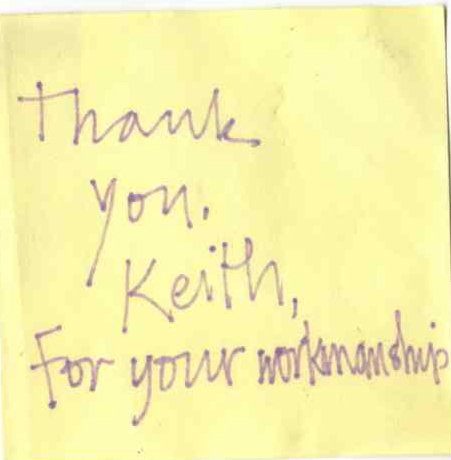 Thank
you.
Keith,
For your workmanship